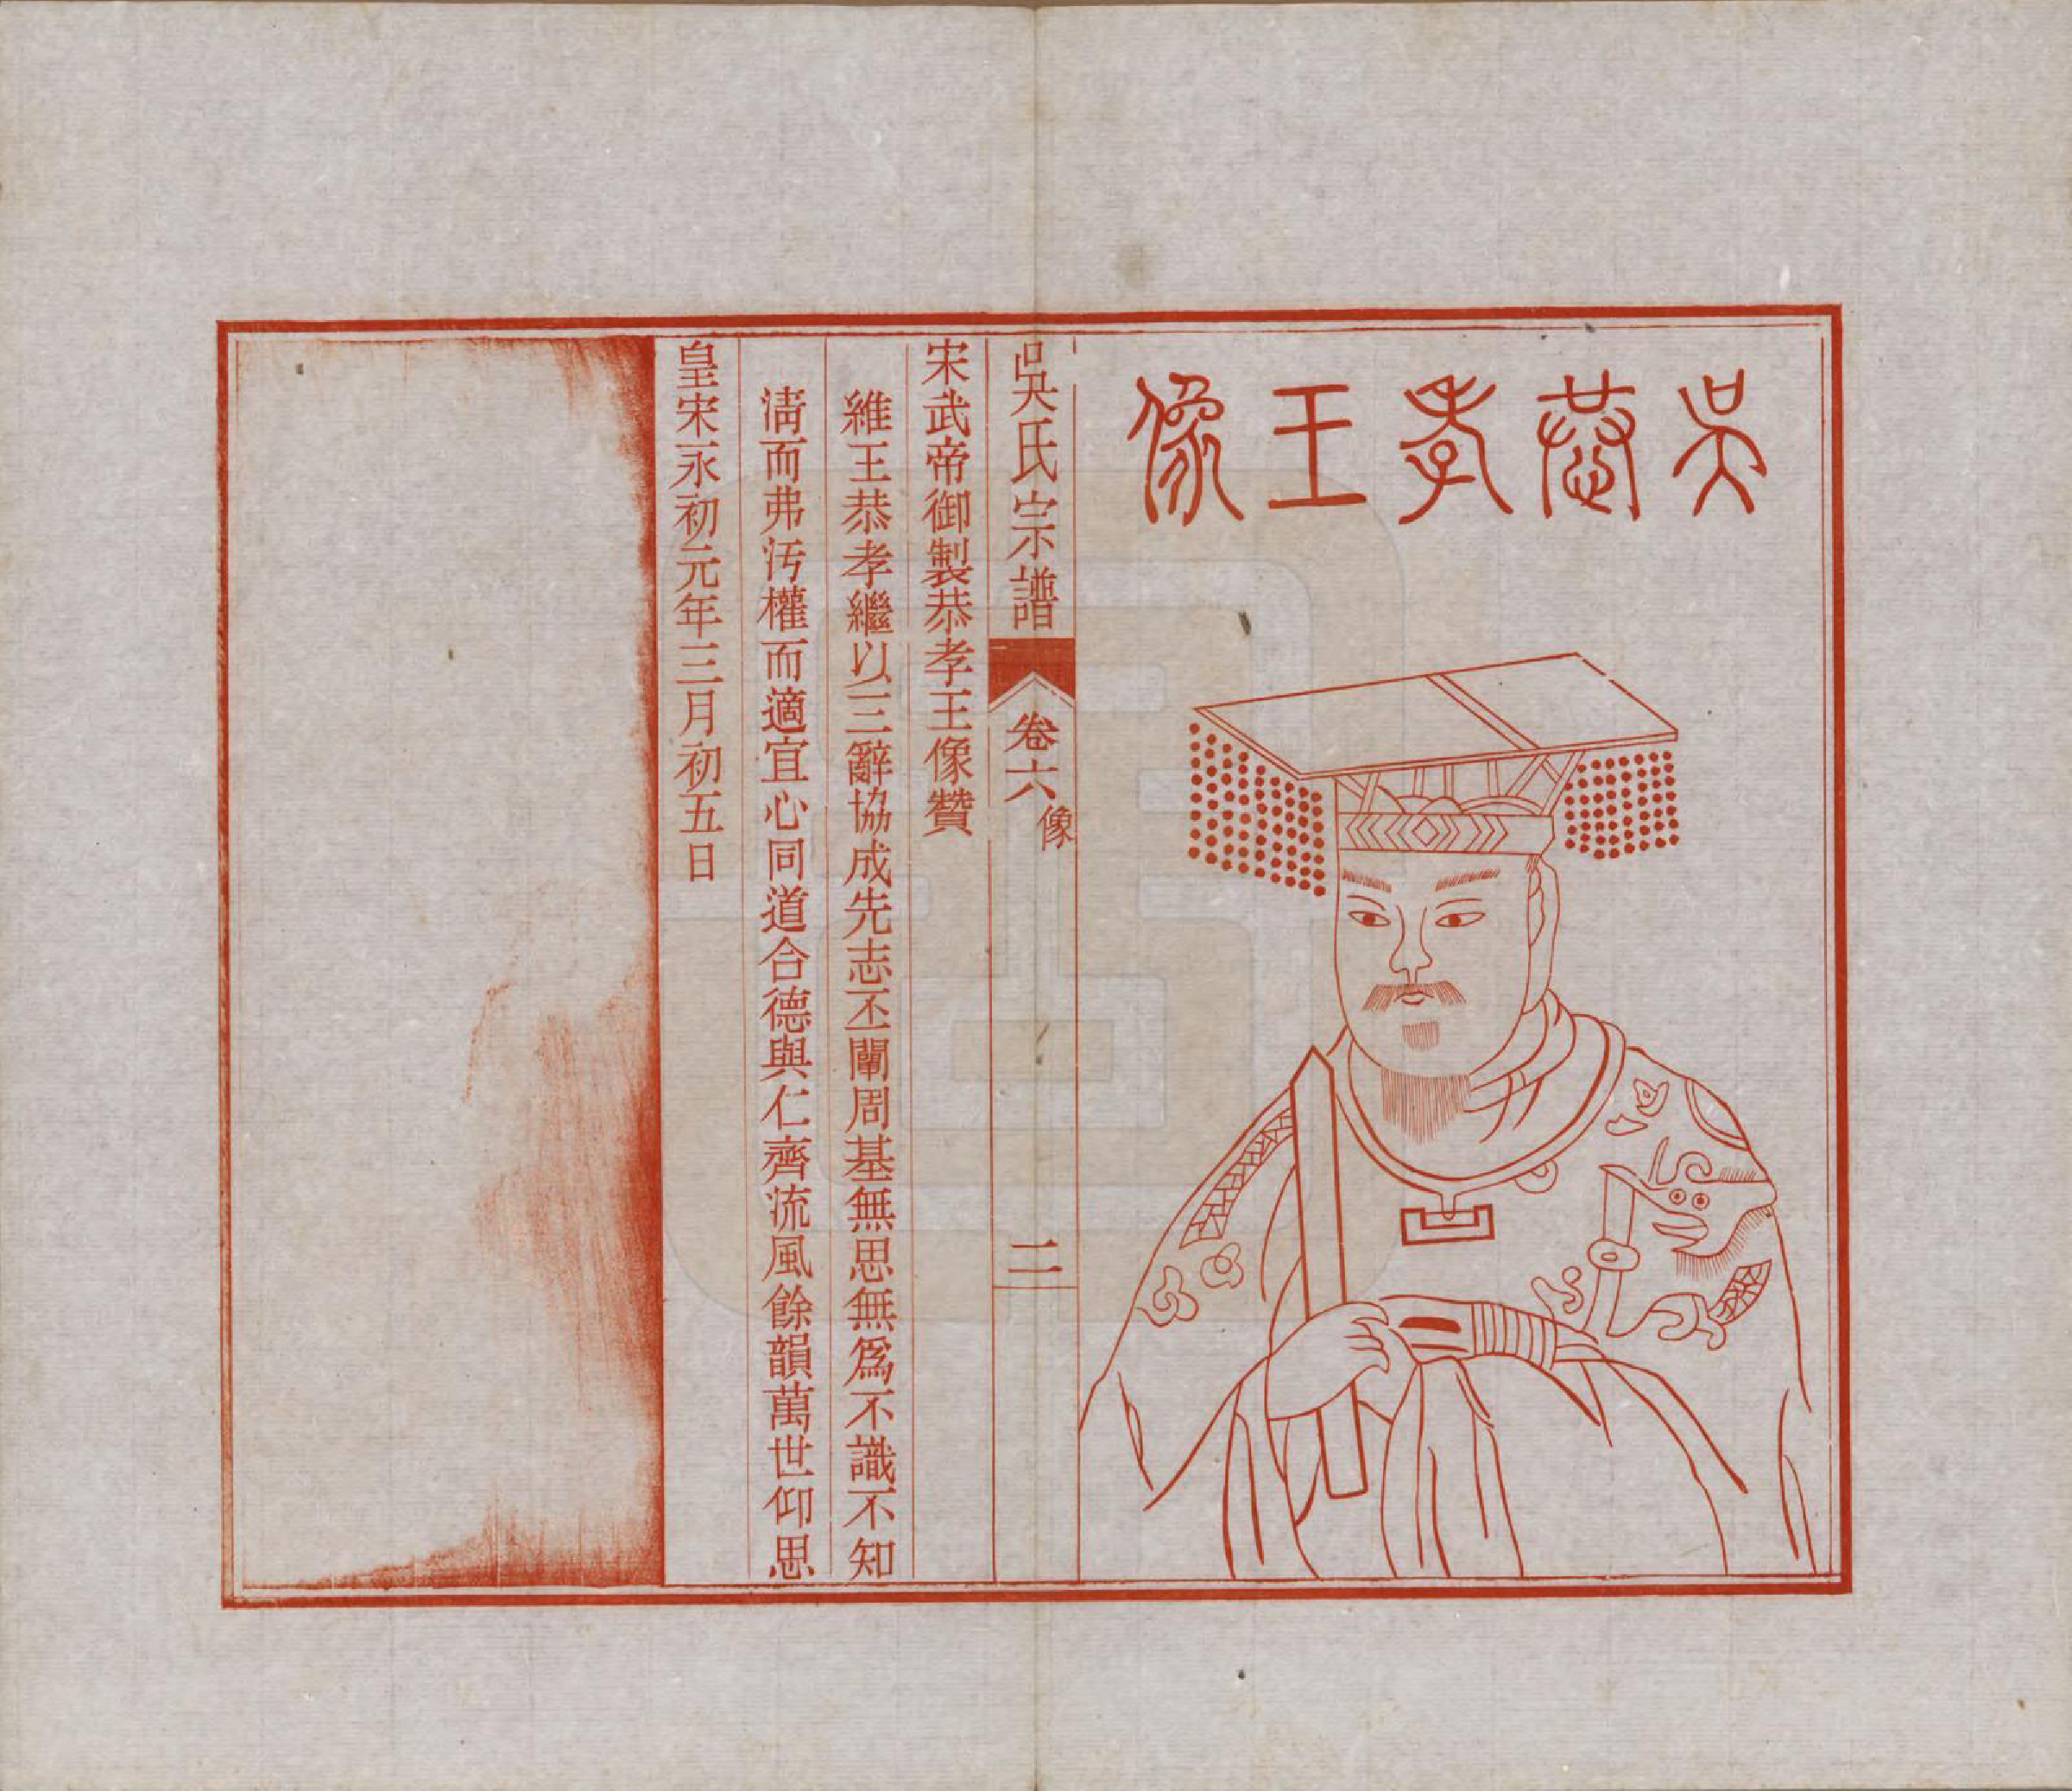 吳恭孝王像
吳氏宗譜
卷六
像
二
宋武帝御製恭孝王像贊
維王恭孝繼以三辭協成先志丕闡周基無思無爲不識不知
淸而弗汚權而適宜心同道合德與仁齊流風餘韻萬世仰思
皇宋永初元年三月初五日